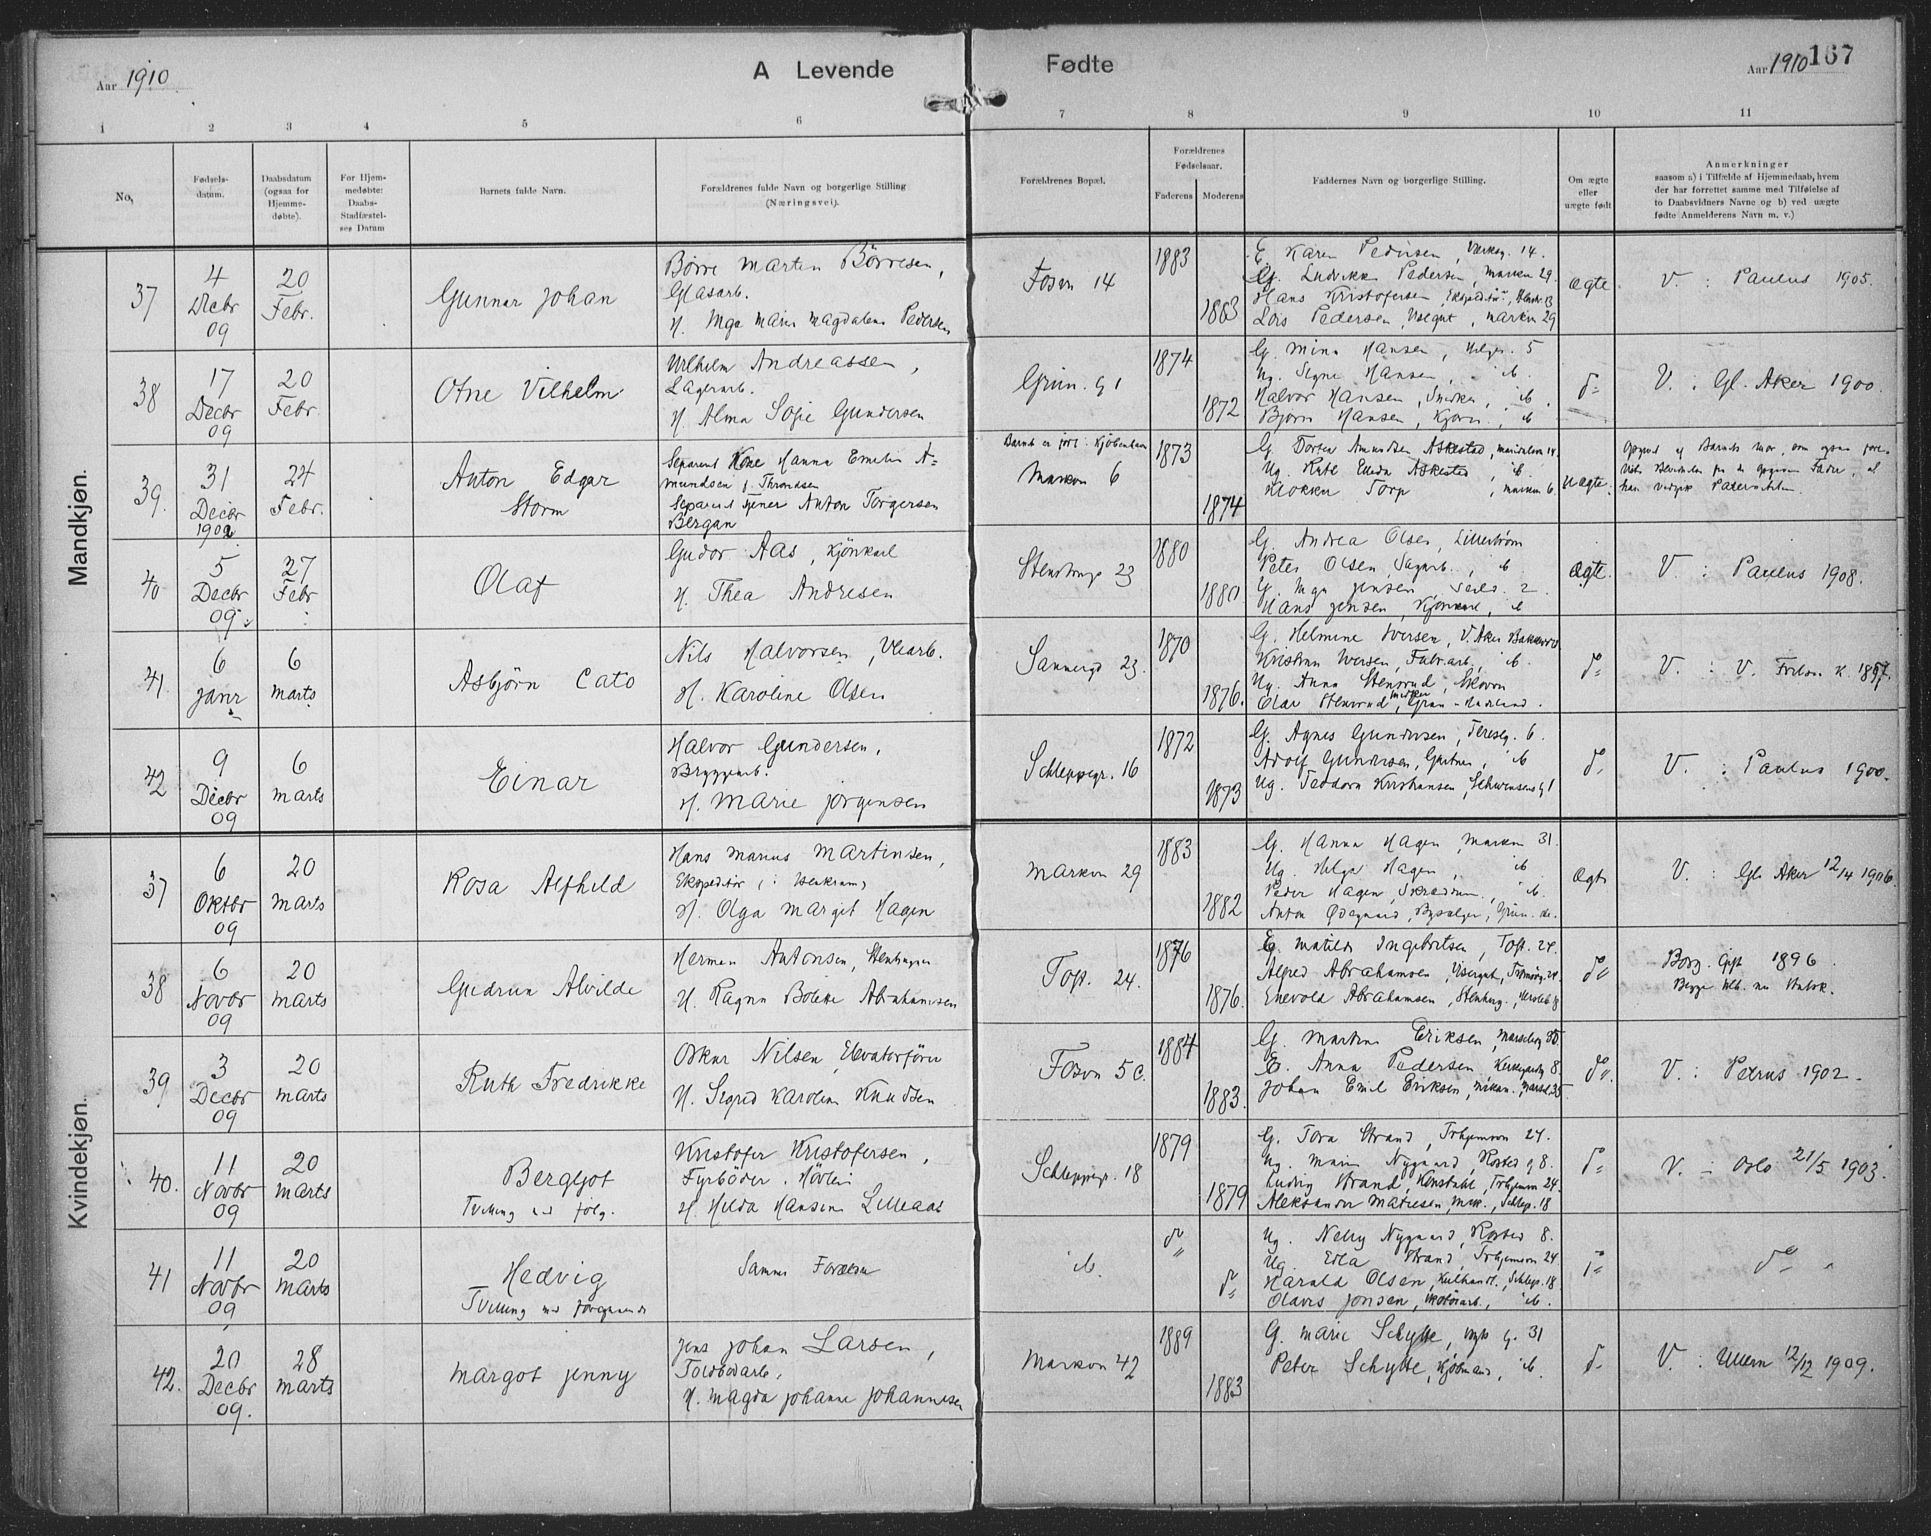 Aar 1910
A Levende
Fødte
Aar 1910 167
1 2 3 4 5 6 7 8 9 10 11
No.
Fødsels-
datum.
Daabsdatum
(ogsaa for
Hjemme-
døbte).
For Hjem-
medøbte:
Daabs-
Stadfæstel-
ses Datum
Barnets fulde Navn.
Forældrenes fulde Navn og borgerlige Stilling
(Næringsvei).
Forældrenes Bopæl.
Forældrenes
Fødselsaar.
Faderens Moderens
Faddernes Navn og borgerlige Stilling.
Om ægte
eller
uægte født
Anmerkninger
saasom a) i Tilfælde af Hjemmedaab, hvem
der har forrettet samme med Tilføielse af
to Daabsvidners Navne og b) ved uægte
fødte Anmelderens Navn m. v.)
Mandkjøn.
37
4
Decbr
09
20
Febr.
Gunnar Johan
Børre Martin Børresen,
Glasarb.
H. Inga Marie Magdalena Pedersen
Fosvn 14
1883
1883
E. Karen Pedersen, 14.
G. Ludvikke Pedersen, Markvn 29.
Hans Kristofersen, Ekspeditør, 13
Lars Pedersen, Visegut, Markvn 29
Ægte
V. : Paulus 1905.
38
17
Decbr
09
20
Febr.
Arne Vilhelm
Vilhelm Andreassen,
Lagerarb.
H. Alma Sofie Gundersen
Grün. g 1
1874
1872
G. Mina Hansen, Helges. 5
Ug. Signe Hansen, ib.
Halvor Hansen, Snedker, ib.
Bjørn Hansen, ib
do
V. : Gl. Aker 1900.
39.
31
Decbr
1902
24
Febr.
Anton Edgar
Storm
Separeret Kone Hanna Emelie A=
mundsen f. Throndsen
Separeret Tjener Anton Torgersen
Bergan
Barnet er født i Kjøbenhavn
Markvn 6
1873
1874
G. Dortea Amundsen Askestad, 14.
Ug. Ruth Elleda Askestad, ib.
Klokker Torp, Markvn 6.
uægte.
Opgivet af Barnets Mor, som ogsaa fore-
viste Bevidnelse fra den opgivne Fader, at
han vedgik Paterniteten.
40
5
Decbr
09.
27
Febr
Olaf
Gudor Aas, Kjørekarl
H. Thea Andresen
Stenstrups 23
1880
1880
G. Andrea Olsen, Lillestrøm
Peter Olsen, Sagarb., ib.
G. Inga Jensen, Seilds. 2.
Hans Jensen, Kjørekarl, ib
Ægte.
V. : Paulus 1908.
41.
6
Janr
6
Marts
Asbjørn Cato
Nils Halvorsen, Vævarb.
H. Karoline Olsen
Sannergd 23.
1870
1876.
G. Helmine Iversen, V. Aker
Kristian Iversen, Fabrarb., ib.
Ug. Anna Stensrud,
Olav Stensrud, Snedker, Gran - Hadeland.
do
V. : V. Frelsers K. 1897.
42
9
Decbr
09
6
Marts
Einar
Halvor Gundersen,
Bryggearb.
H. Marie Jørgensen
Schleppegr. 16
1872
1873
G. Agnes Gundersen, Tereseg. 6.
Adolf Gundersen, Gartner, ib
Ug. Teodora Kristiansen, Schwensens g 1
do
V. : Paulus 1900.
Kvindekjøn.
37
6
Oktbr
09
20
Marts
Rosa Alfhild
Hans Marius Martinsen,
Ekspeditør (i Isenkram)
H. Olga Margit Hagen
Markvn 29
1883
1882
G. Hanna Hagen, Markvn 31.
Ug. Helga Hagen, ib.
Peder Hagen, Skrædderm., ib.
Anton Ødegaard, Bysælger, Grün.
Ægte
V. : Gl. Aker 12/4 1906.
38
6
Novbr
09
20
Marts
Gudrun Alvilde
Herman Antonsen, Stenhugger
H. Ragna Bolette Abrahamsen
Toft. 24.
1876
1876.
E. Matilde Ingebretsen, Toft. 24.
Alfred Abrahamsen, Visergut, Tromsøg. 24
Enevold Abrahamsen, Stenhug., Herslebs 18
do
Borg. Gift 1896.
Begge Udtr. nu Statsk.
39
3
Decbr
09
20
Marts
Ruth Fredrikke
Oskar Nilsen, Elevatorfører
H. Sigrid Karoline Knudsen
Fosvn 5 C.
1884
1883.
G. Martine Eriksen, Marselisg 35
E. Anna Pedersen, Kirkegaardg 8.
Johan Emil Eriksen, Mekan., Mars. 35.
do.
V. : Petrus 1902.
40.
11
Novbr
09
20
Marts
Bergljot
Tvilling med følg.
Kristofer Kristofersen,
Fyrbøder, Høvleri
H. Hilda Hansine Lilleaas
Schleppegr. 18
1879
1879
G. Tora Strand, Trhjemsvn 24.
Ug. Marie Nygaard, Rosted g 8.
Ludvig Strand, Konstabel, Trhjemsvn 24.
Aleksander Matiesen, Mek., Schlep. 18
do
V. : Oslo 21/5 1903.
41
11
Novbr
09
20
Marts
Hedvig
Tvilling med forgaaende
Samme Forældre
ib.
do
do
Ug. Nelly Nygaard, Rosted 8.
Ug. Erla Strand, Trhjemsvn 24
Harald Olsen, Kulhandl., Schlep. 18
Olaves Jonsen, ib.
do
do
42.
20
Decbr
09.
28
Marts
Margot Jenny
Jens Johan Larsen,
Toldbodarb.
H. Magda Johanne Johannesen
Markvn 42
1889
1883
G. Marie Schytte, g. 31
Peter Schytte, Kjøbmand, ib.
do
V. : Ullern 12/12 1909.